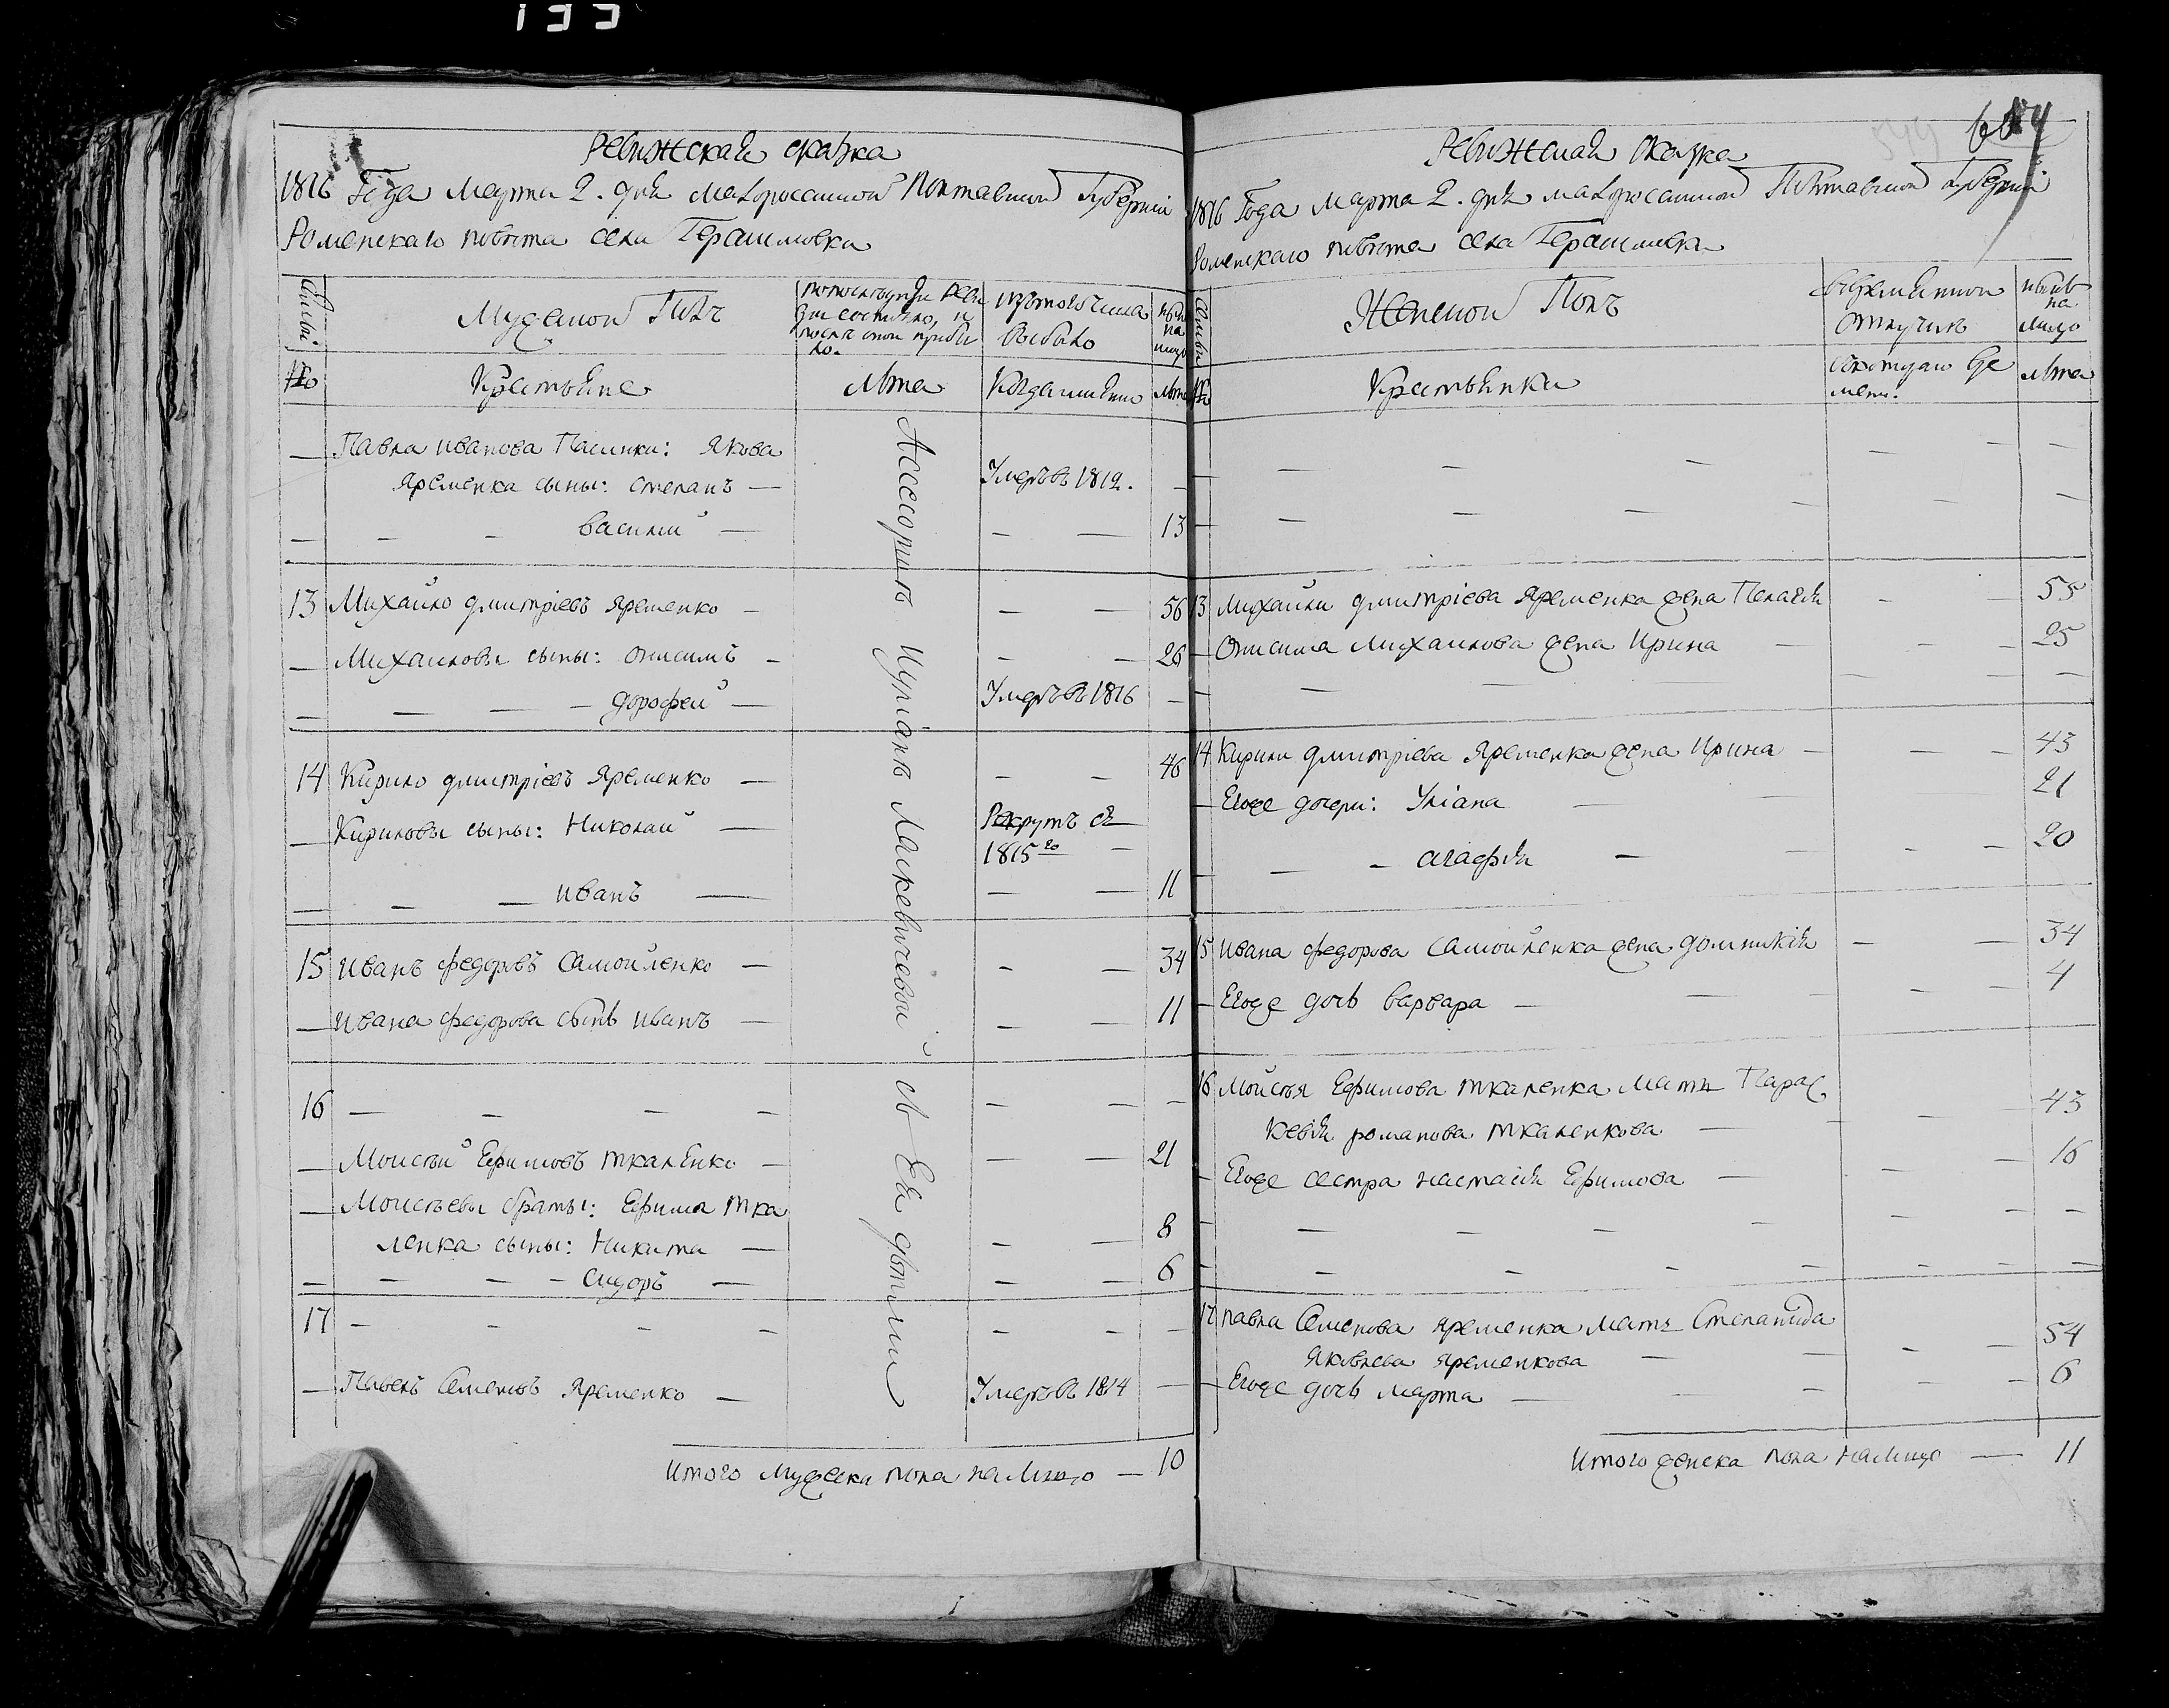 133
Ревижская сказка
1816 Года Марта 2. дня Малороссийской Полтавской Губернии
Роменскаго повѣта села Герасимовки
Семьи
Мужеской Полъ
по последней реви
зіи состояло, и
после оной прибы
ло.
изъ того числа
выбыло
нынѣ
на
лицо
№
Крестьяне
лѣта
Когда имянно
лѣта
Павла иванова Пасинки: Якова
яременка сыны: степанъ —
Умеръ въ 1812.
— — — василий — — — 13
13 Михайло дмитріевъ яременко — — — 56
— Михайловы сыны: онисимъ — — — 26
— — — — дорофей — Умеръ въ 1816 —
14 Кирило дмитріевъ яременко — — — 46
— Кириловы сыны: Николай — Рекрутъ съ
1815го —
— — — иванъ — — — 11
15 иванъ федоровъ самойленко — — — 34
— ивана федорова сынъ иванъ — — — 11
16 — — — — — — —
— Моисѣй Ефимовъ ткаленко — — — 21
— Моисѣевы браты: Ефима тка
ленка сыны: Никита — — — 8
— — — — сидоръ — — — 6
17 — — — — — — —
— Павелъ Семеновъ яременко — Умеръ въ 1814 —
Итого мужеска пола налицо — 10
Ассесорши Маскевичевой съ Ея дѣтьми
549
604
Ревижская сказка
1816 Года Марта 2. дня малоросийской Полтавской Губерніи
Роменскаго повѣта села Герасимовки
Семьи
Женской Полъ
во временной
отлучкѣ
нынѣ
на
лицо
№
Крестьянки
съ котораго вре
мени.
лѣта
— — — — — —
— — — — — —
13 Михайла дмитріева яременка жена Пелагія — — 55
— Онисима Михайлова жена Ирина — — — 25
— — — — — — —
14 Кирила дмитріева яременка жена Ирина — — — 43
— Егоже дочери: Уліана — — 21
— — — агафія — — — — 20
15 ивана федорова самойленка жена домникія — — 34
— Егоже дочь варвара — — — — 4
16 Мойсѣя Ефимова ткаленка Мать Парас
кевія романова ткаленкова — — 43
— Егоже сестра настасія Ефимова — — — 16
— — — — — — — —
— — — — — — — —
17 павла Семенова яременка мать Степанида
яковлева яременкова — — — 54
— Егоже дочь марта — — — — 6
Итого женска пола налицо — 11